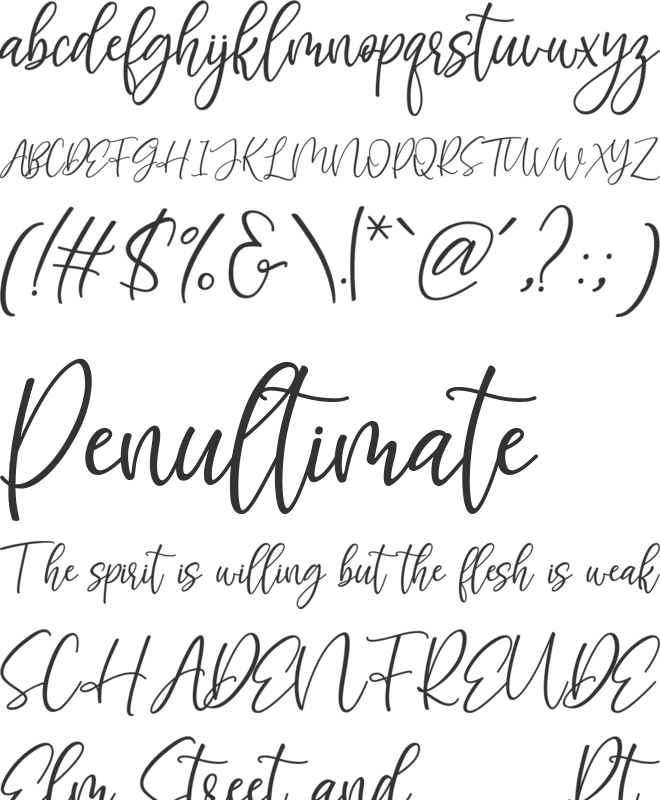 abcdefghijklmnopqrstuvwxyz
ABCDEFGHIJKLMNOPQRSTUVWXYZ
(!#$%&\.|*`@´,?:;)
Penultimate
The spirit is willing but the flesh is weak
SCHADENFREUDE
Elm Street and Pt